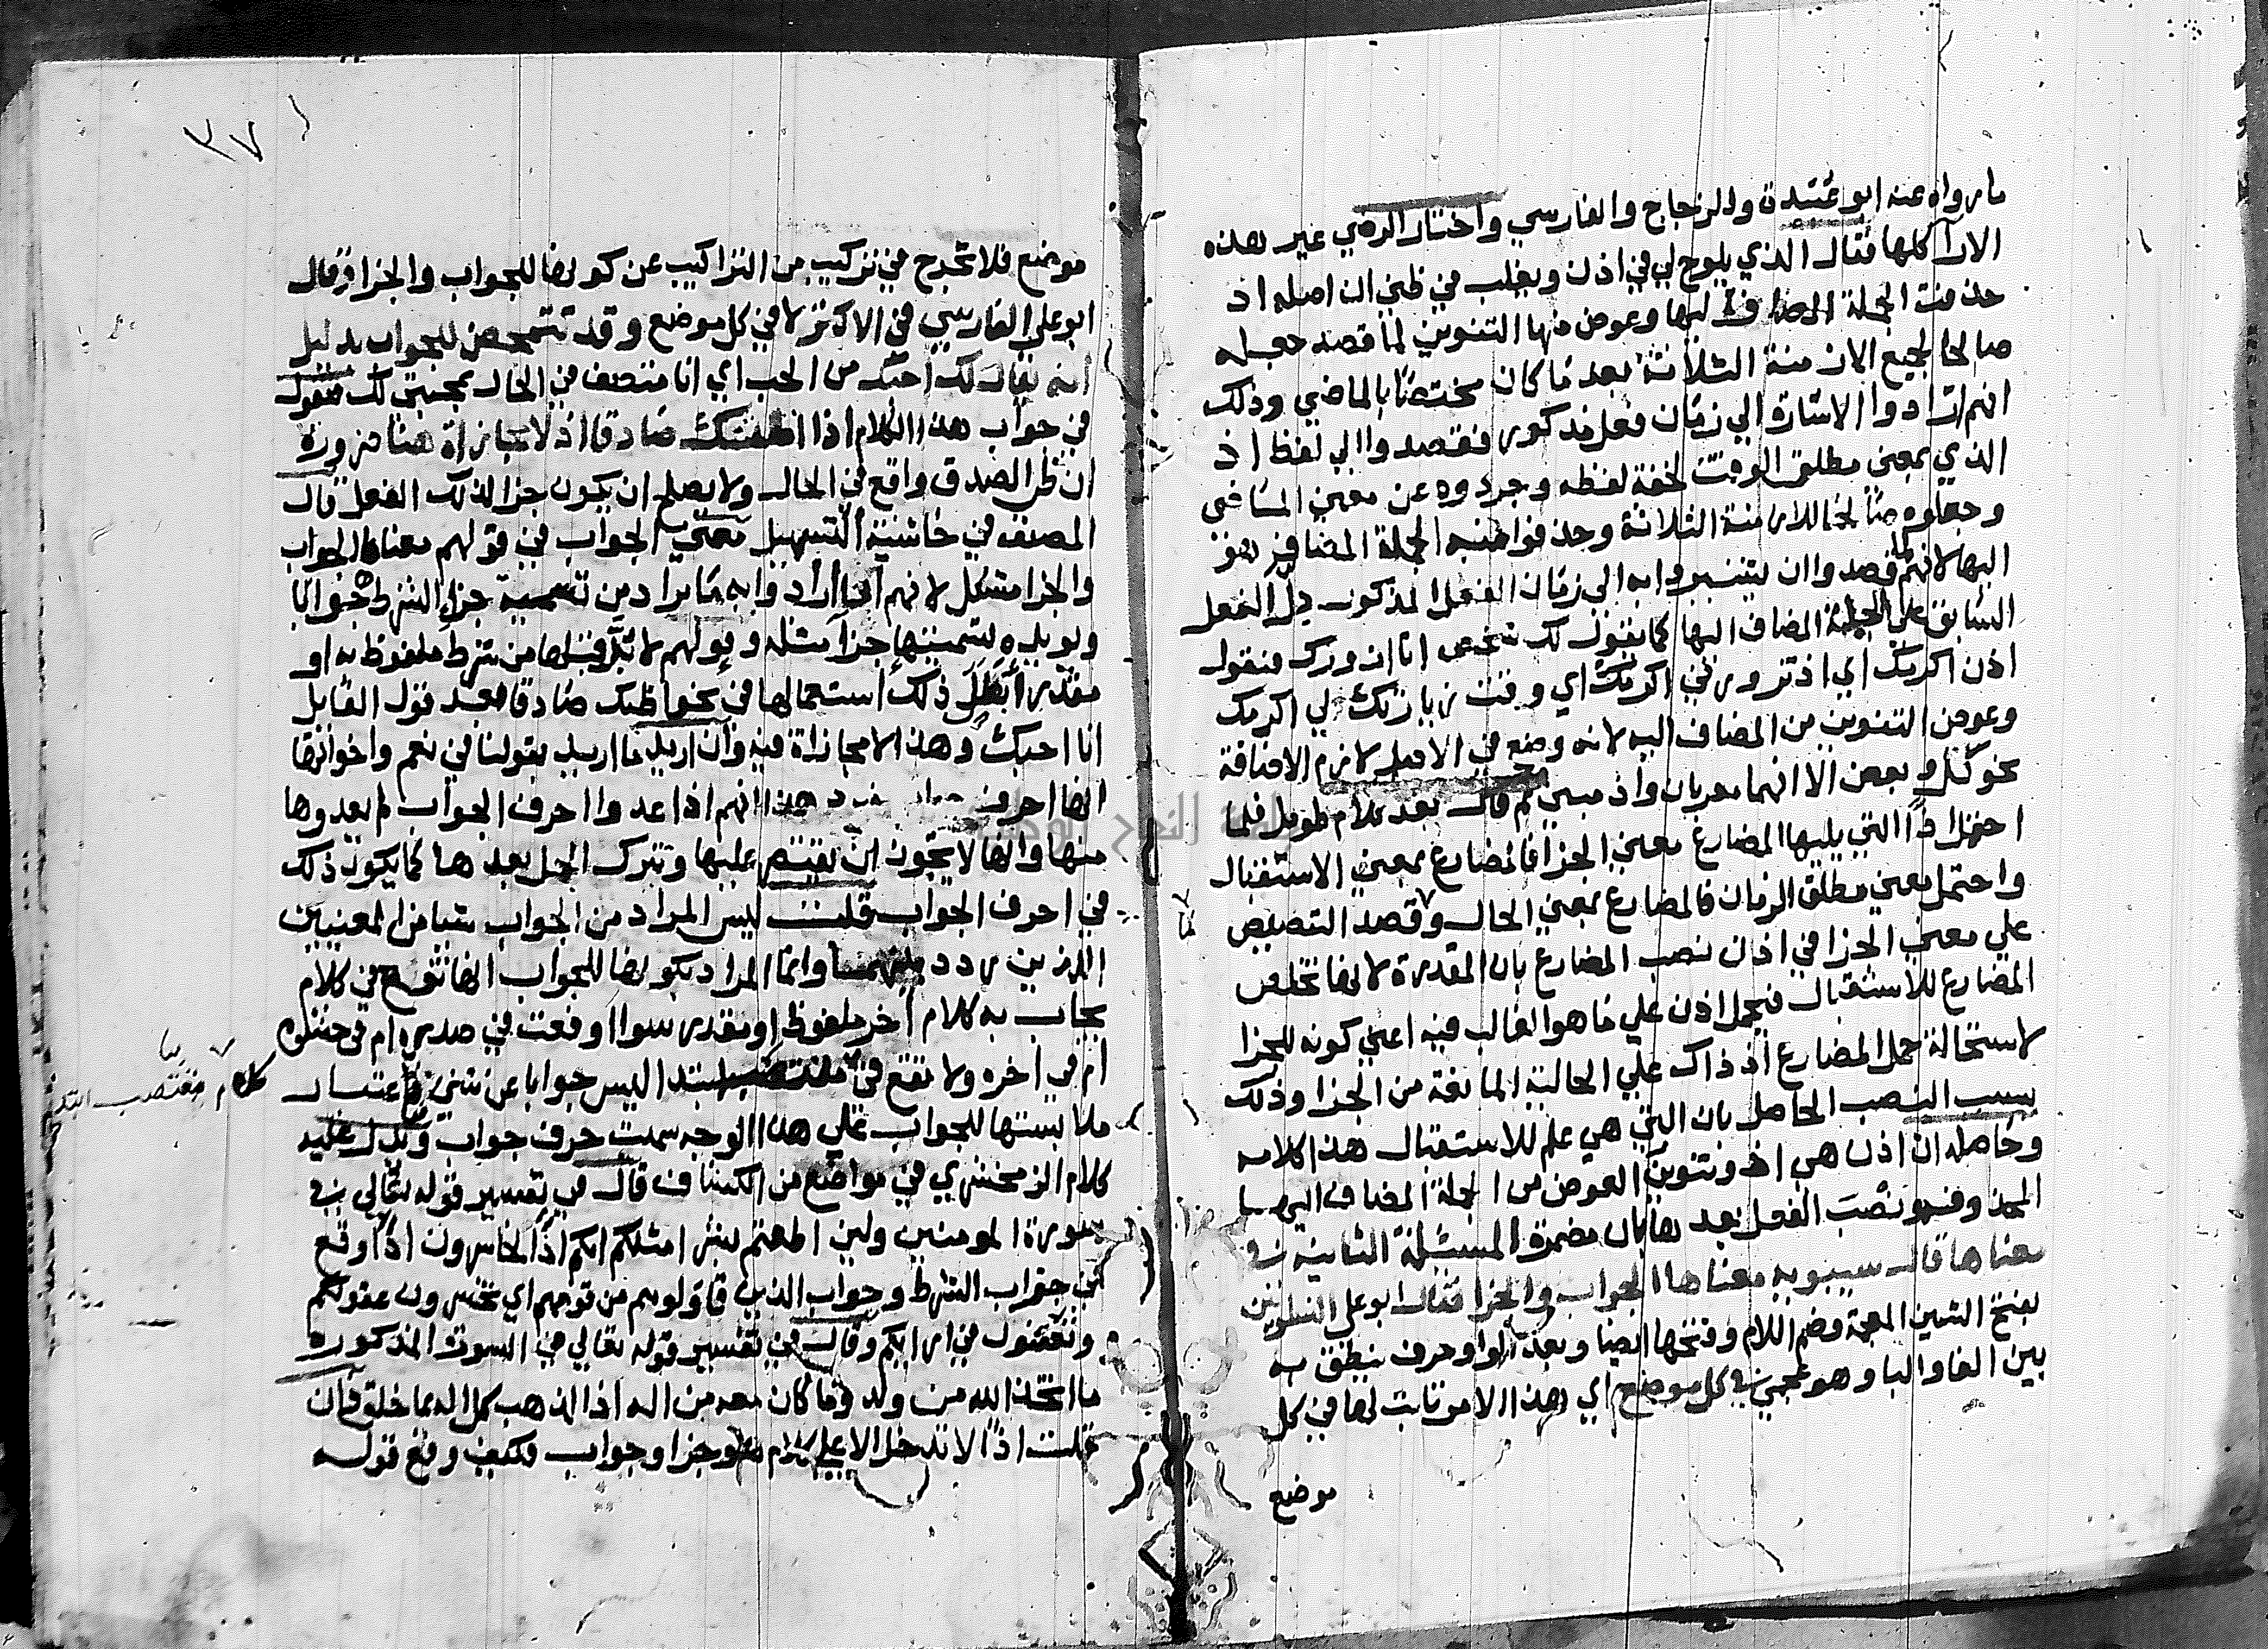 ما رواه عنه ابو عبيدة والزجاج والفارسي واختار الرضي غير هذه
الارآ كلها فقال الذي يلوح لي في اذن ويغلب في ظني ان اصله اذ
حذفت الجملة المضاف اليها وعوض منها التنوين لما قصد جعله
صالحا لجميع الازمنة الثلاثة بعد ما كان مختصا بالماضي وذلك
انهم ارادوا الاشارة الي زمان فعل مذكور فقصدوا الي لفظ اذ
الذي بمعني مطلق الوقت لخفة لفظه وجردوه عن معني الماضي
وجعلوه صالحا للازمنة الثلاثة وحذفوا منه الجملة المضاف هو
اليها لانهم لما قصدوا ان يشيروا به الي زمان الفعل المذكور دل الفعل
السابق علي الجملة المضاف اليها كما يقول لك شخص انا ازورك فتقول
اذن اكرمك اي اذ تزورني اكرمك اي وقت زيارتك لي اكرمك
وعوض التنوين من المضاف اليه لانه وضع في الاصل لازم الاضافة
نحو كل و بعض الا انهما معربان واذ مبني ثم قال بعد كلام طويل فلما
احتمل اذا التي يليها المضارع معني الجزا فالمضارع بمعني الاستقبال
واحتمل معني مطلق الزمان فالمضارع بمعني الحال وقصد التنصيص
لما
علي معني الجزا في اذن نصب المضارع بان المقدرة لانها تخلص
المضارع للاستقبال فيحمل اذن علي ما هو الغالب فيه اعني كونه للجزا
لاستحالة حمل المضارع اذ ذاك علي الحالية المانعة من الجزا وذلك
بسبب النصب الحاصل بان التي هي علم للاستقبال هذا كلامه
وحاصله ان اذن هي اذ وتنوين العوض من الجملة المضاف اليها
المحذوفة ونصب الفعل بعدها بان مضمرة المسئلة الثانية في
معناها قال سيبويه معناها الجواب والجزا فقال ابو علي الشلوبين
بفتح الشين المعجمة وضم اللام وفتحها ايضا وبعد الواو حرف ينطق به
بين الفا والبا وهو عجمي في كل موضع اي هذا الامر ثابت لها في كل
موضع
٣٧
موضع فلا تخرج في تركيب من التراكيب عن كونها للجواب والجزا وقال
ابو علي الفارسي في الاكثر لا في كل موضع وقد تتمحض للجواب بدليل
انه يقال لك احبك من الحب اي انا متصف في الحال بمحبتي لك فتقول
في جواب هذا الكلام اذا اظنك صادقا اذ لا مجازاة هنا ضرورة
ان ظن الصدق واقع في الحال ولا يصلح ان يكون جزا لذلك الفعل قال
المصنف في حاشية التسهيل معني الجواب في قولهم معناه الجواب
والجزا مشكل لانهم ان ارادوا به ما يراد من تسمية جزا الشرط جوابا
ويويده تسميتها جزا مثله وقولهم لا بد قبلها من شرط ملفوظ به او
مقدر ابطل ذلك استعمالها في نحو اظنك صادقا بعد قول القايل
انا احبك وهذا لا مجازاة فيه وان اريد ما اريد بقولنا في نعم واخواتها
انها احرف جواب هذا انهم اذا عدوا احرف الجواب لم يعدوها
منها وانها لا يجوز ان يقتصر عليها وتترك الجمل بعدها كما يكون ذلك
في احرف الجواب قلت ليس المراد من الجواب شيا من المعنيين
اللذين ردد بينهما وانما المراد بكونها للجواب انها تقع في كلام
يجاب به كلام اخر ملفوظ او مقدر سوا اوقعت في صدره ام في حشوه
ام في اخره ولا تقع في كلام مقتضب ابتدا ليس جوابا عن شي فباعتبار
كلام مقتضب ابتدا
ملابستها للجواب علي هذا الوجه سميت حرف جواب ويدل عليه
كلام الزمخشري في مواضع من الكشاف قال في تفسير قوله تعالي في
سورة المومنين ولين اطعتم بشرا مثلكم انكم اذا لخاسرون اذا وقع
في جواب الشرط وجواب الذين قاولوهم من قومهم اي تخسرون عقولكم
وتغبنون في ارايكم وقال في تفسير قوله تعالي في السورة المذكورة
ما اتخذ الله من ولد وما كان معه من اله اذا لذهب كل اله بما خلق فان
قلت اذا لا تدخل الا علي كلام هو جزا وجواب فكيف وقع قوله